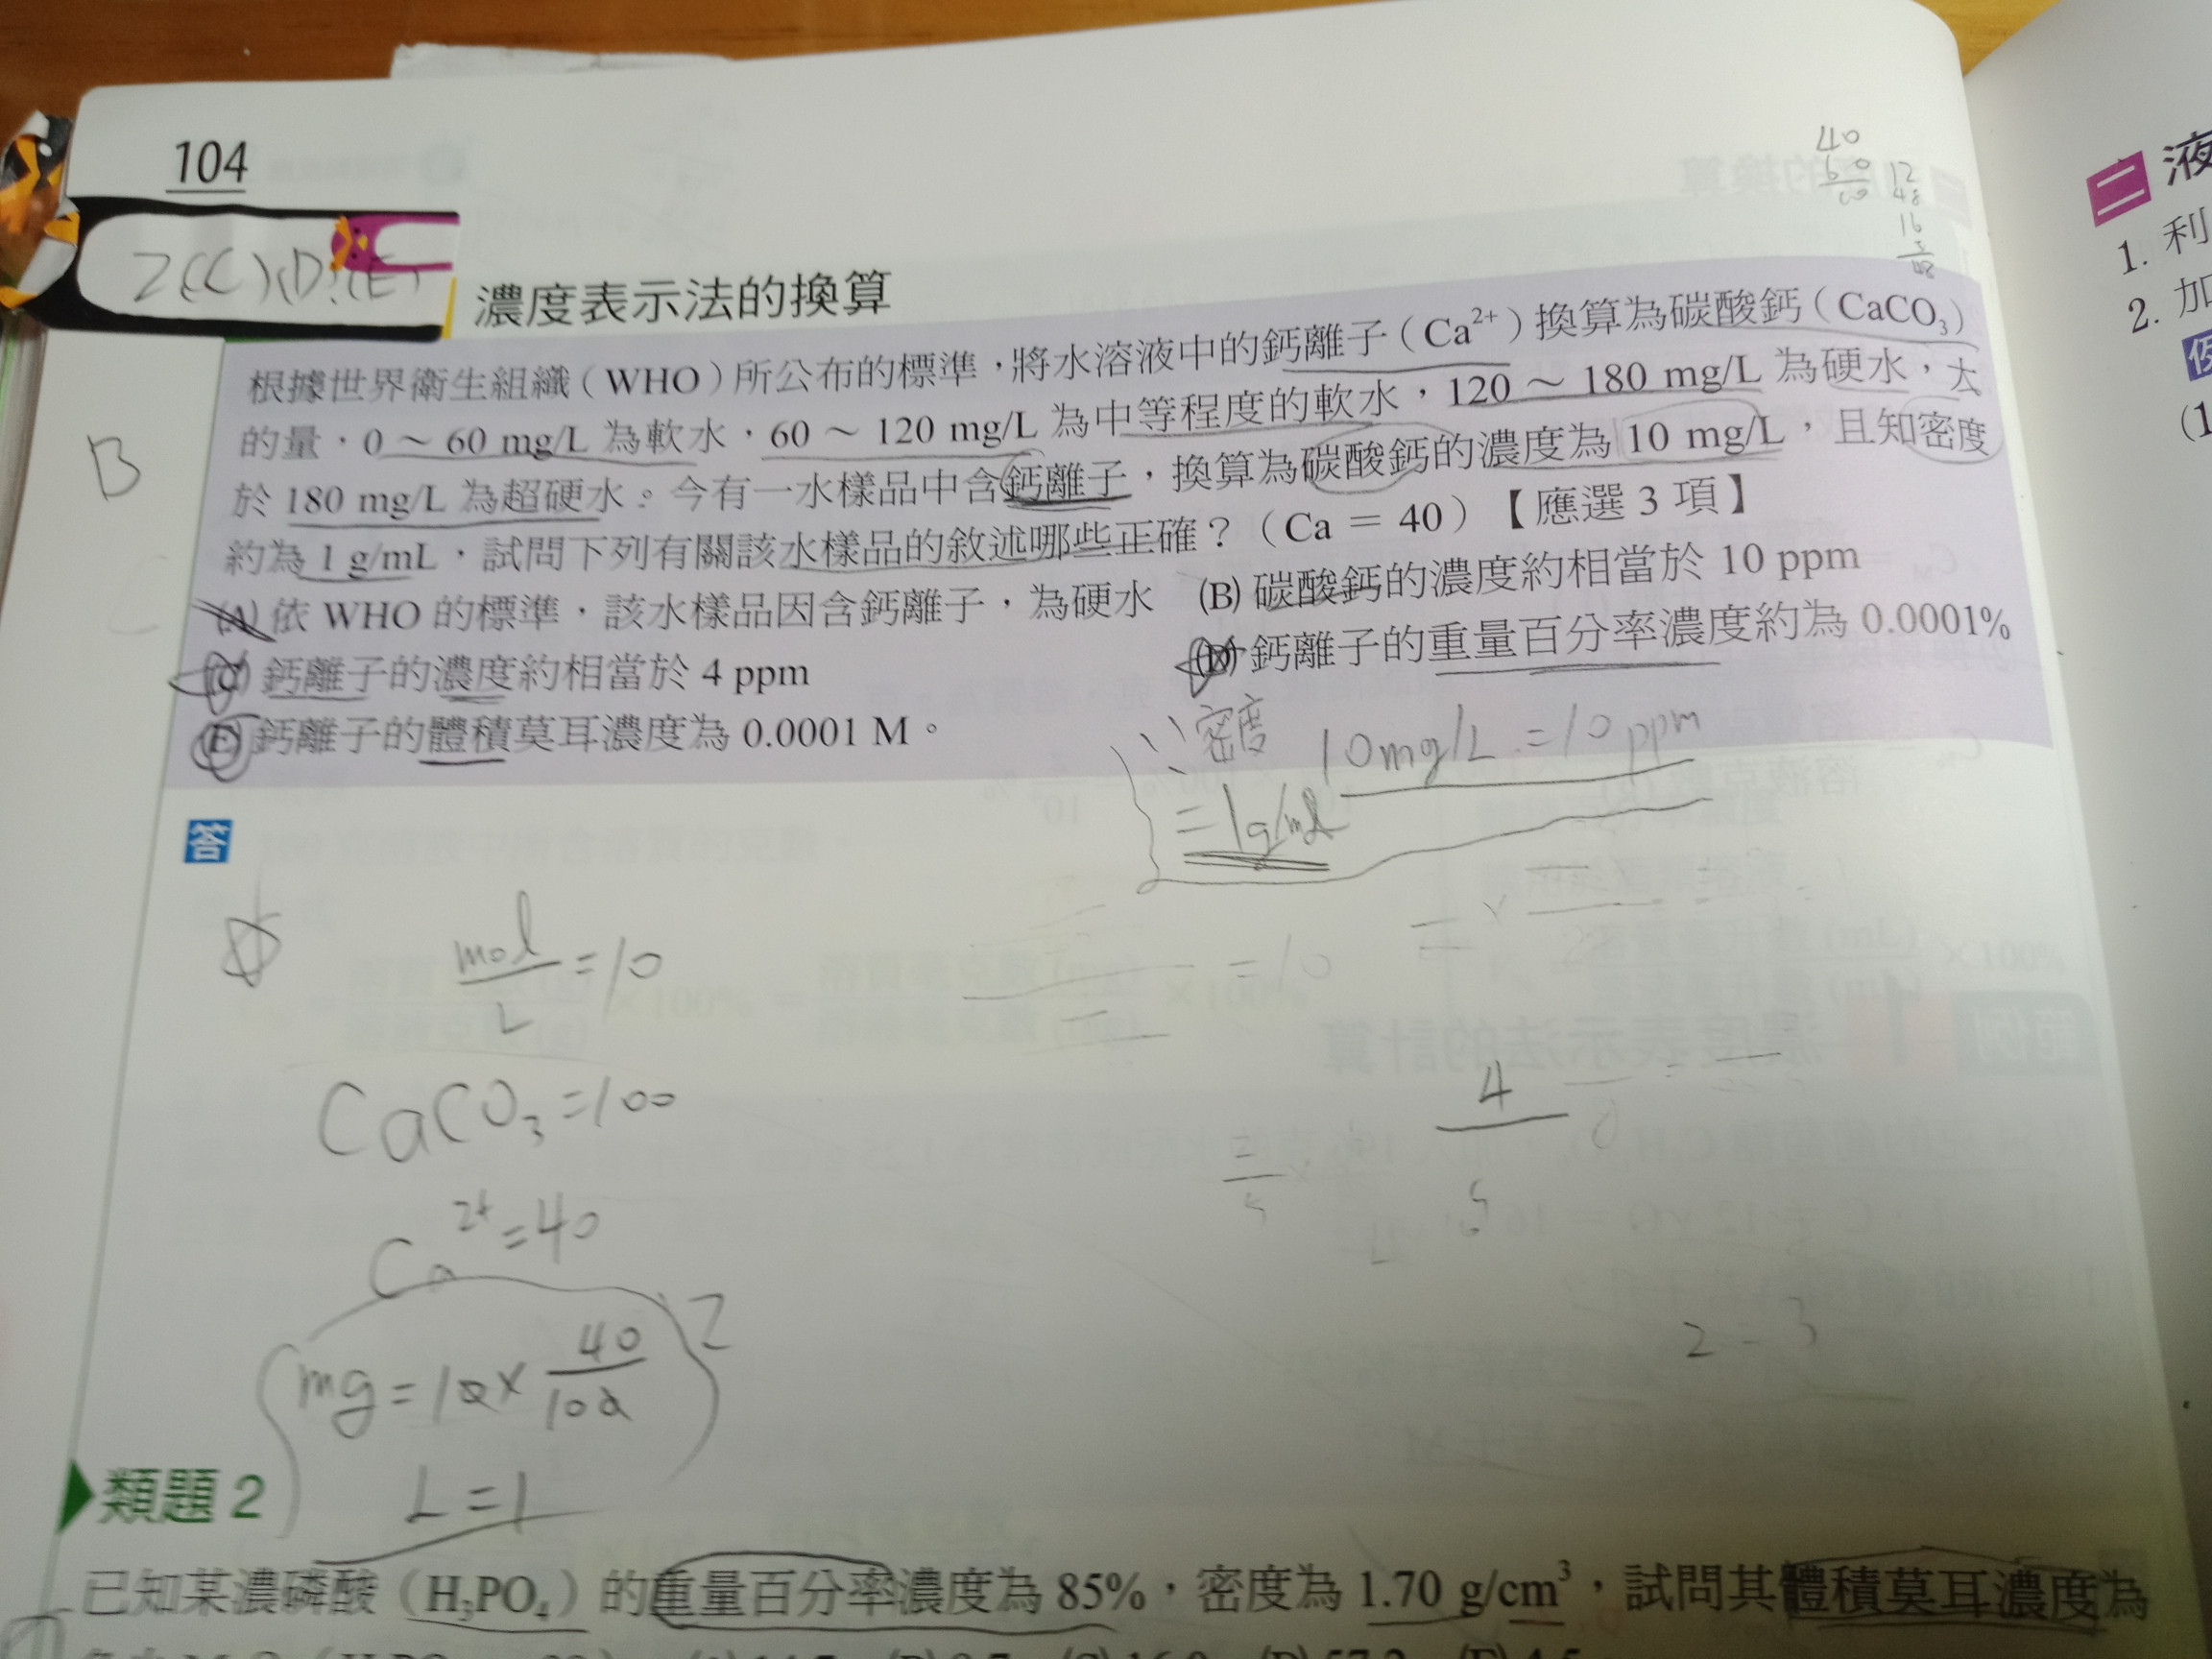 104
2(C)(D)(E)
濃度表示法的換算
40
60
12
48
16
3
48
根據世界衛生組織（WHO）所公布的標準，將水溶液中的鈣離子（Ca²⁺）換算為碳酸鈣（CaCO₃）
的量，0～60 mg/L 為軟水，60～120 mg/L 為中等程度的軟水，120～180 mg/L 為硬水，大
於 180 mg/L 為超硬水。今有一水樣品中含鈣離子，換算為碳酸鈣的濃度為 10 mg/L，且知密度
約為 1 g/mL，試問下列有關該水樣品的敘述哪些正確？（Ca = 40）【應選 3 項】
(A) 依 WHO 的標準，該水樣品因含鈣離子，為硬水 (B) 碳酸鈣的濃度約相當於 10 ppm
(C) 鈣離子的濃度約相當於 4 ppm (D) 鈣離子的重量百分率濃度約為 0.0001%
(E) 鈣離子的體積莫耳濃度為 0.0001 M。
B
∵密度
=1g/ml
10mg/L=10ppm
答
mol/L=10
CaCO₃=100
Ca²⁺=40
mg=10×40/100
L=1
4
5
2-3
類題 2
已知某濃磷酸（H₃PO₄）的重量百分率濃度為 85%，密度為 1.70 g/cm³，試問其體積莫耳濃度為
二 液
1. 利
2. 加
(1